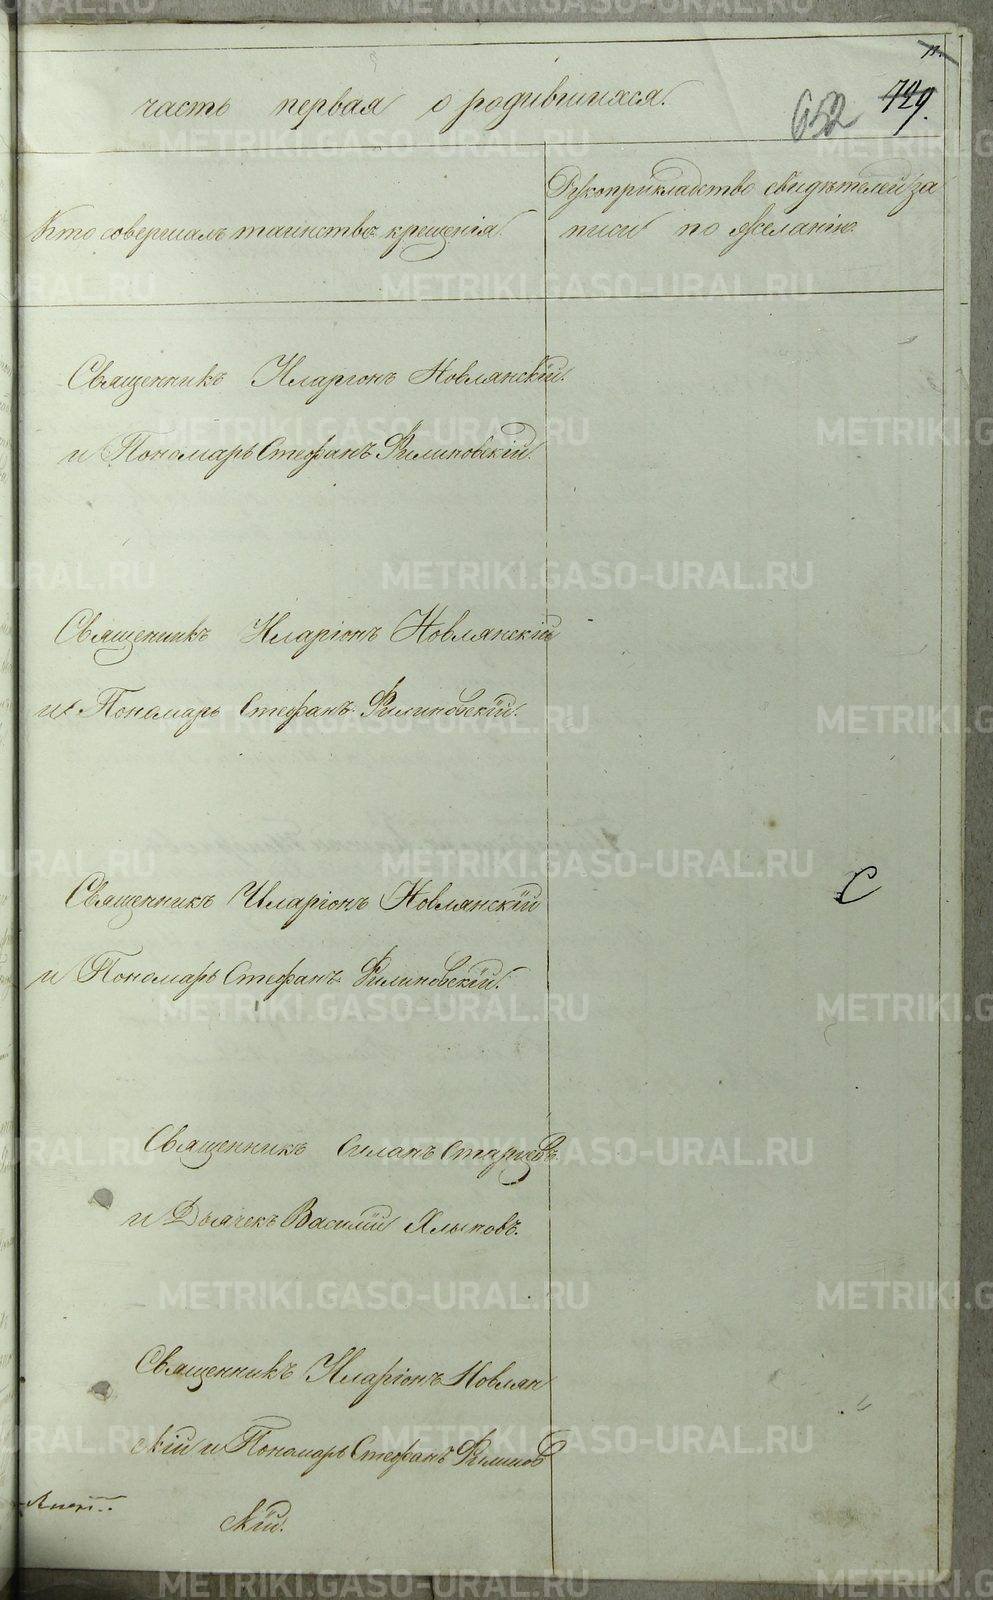 11.
часть первая о родившихся.
652 729.
Кто совершалъ таинство крещенія.
Рукоприкладство свидѣтелей за
писи по желанію.
Священникъ Иларіонъ Новлянскій.
и Пономарь Стефанъ Филиповскій.
Священникъ Иларіонъ Новлянскій
и Пономарь Стефанъ Филиповскій.
Священникъ Иларіонъ Новлянскій
С
и Пономарь Стефанъ Филиповскій.
Священникъ Силанъ Старцовъ
и Дьячекъ Василій Ялыповъ.
Священникъ Иларіонъ Новлян
скій и Пономарь Стефанъ Филипов
скій.
METRIKI.GASO-URAL.RU